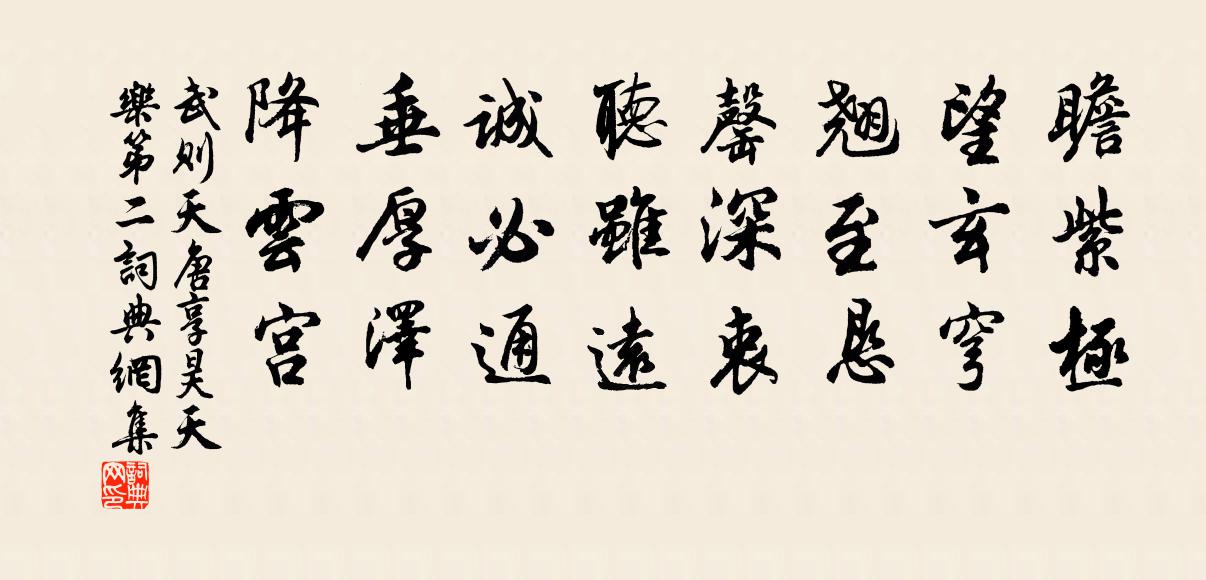 瞻紫極
望玄穹
翹至恳
罄深衷
聽雖遠
誠必通
垂厚澤
降雲宫
武则天唐享昊天
樂第二詞典網集
詞典网印